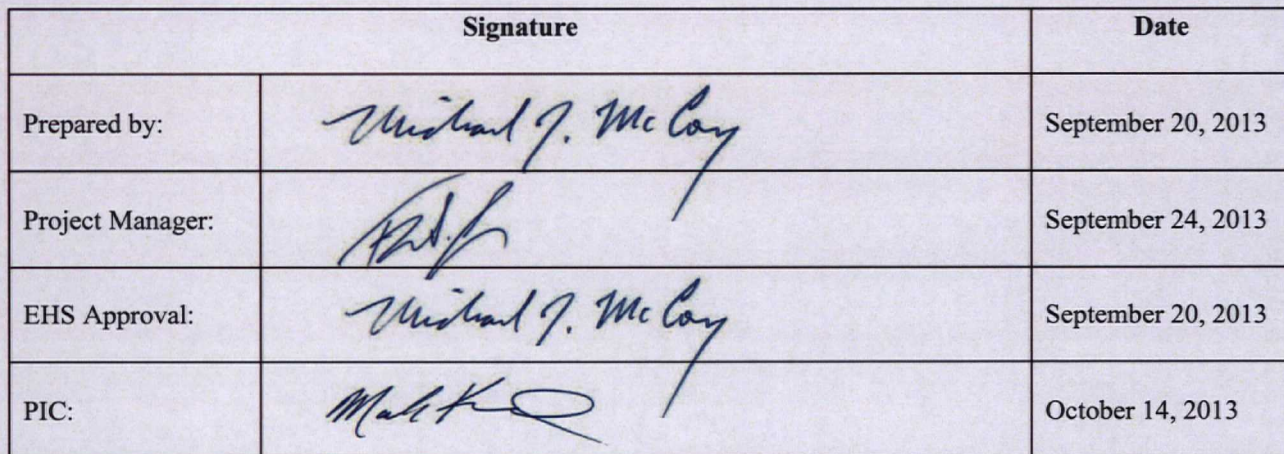 Signature Date
Prepared by: Michael J. McCoy September 20, 2013
Project Manager: September 24, 2013
EHS Approval: Michael J. McCoy September 20, 2013
PIC: October 14, 2013